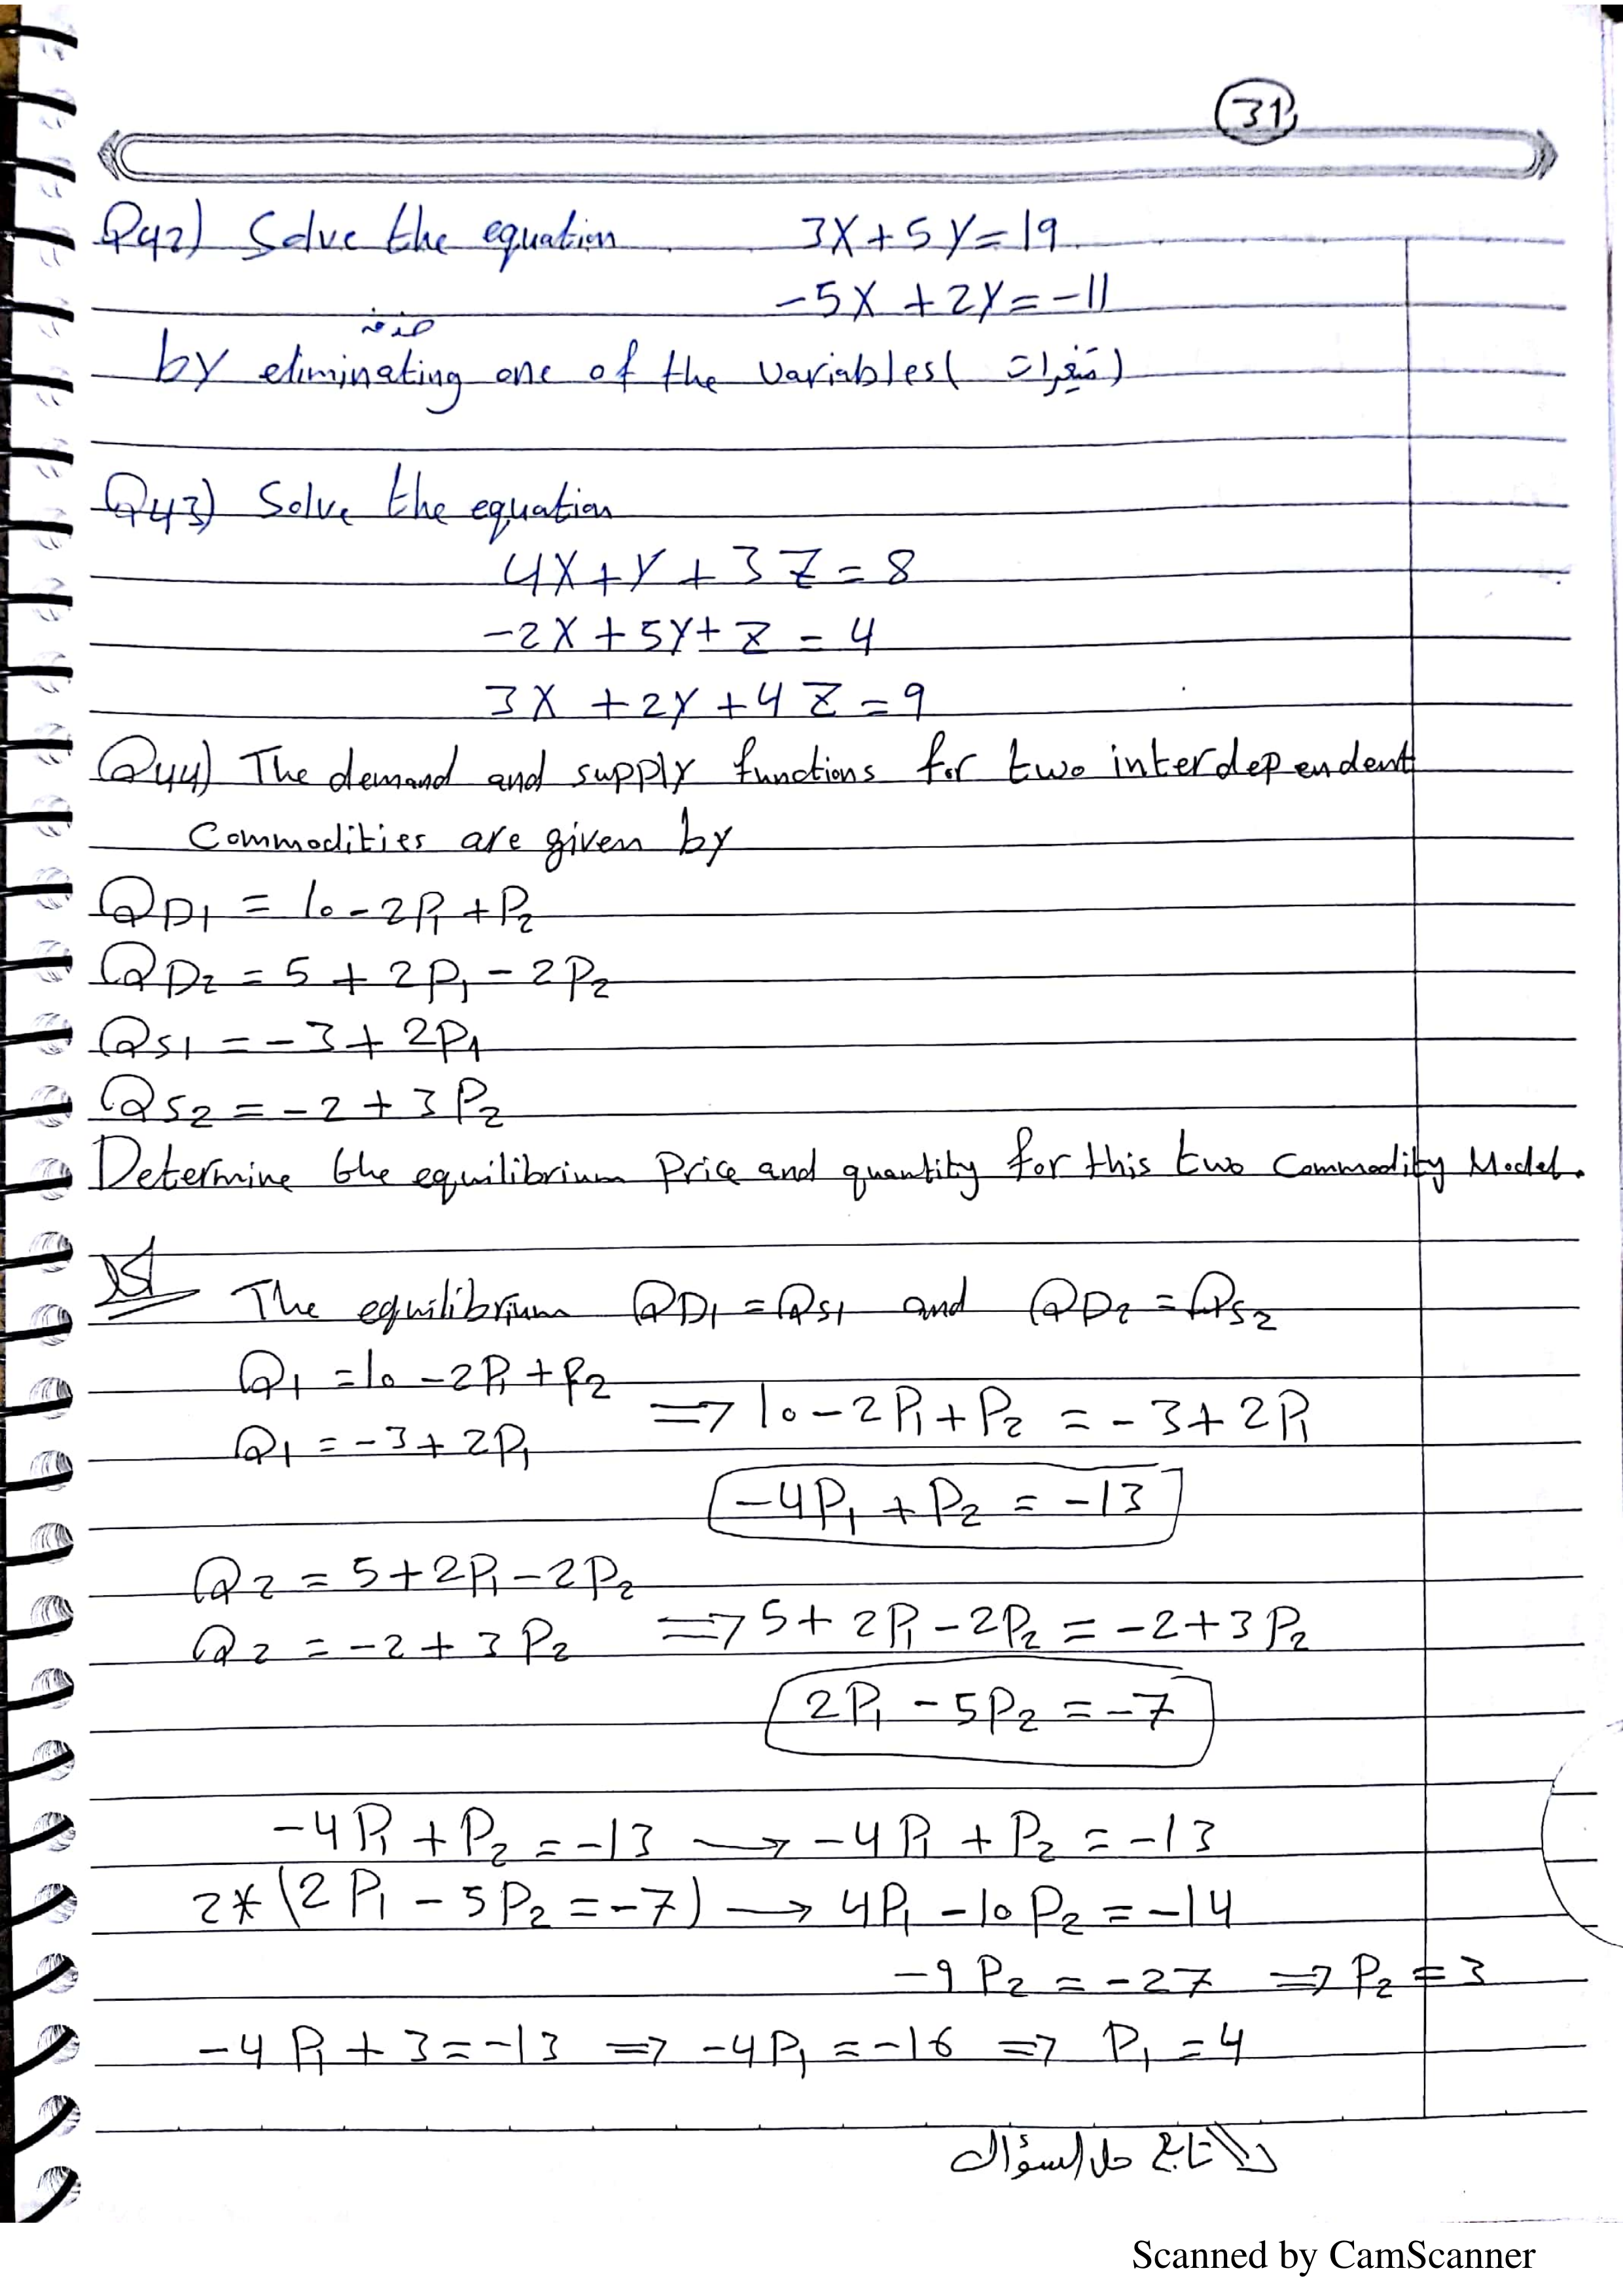 31
Q42) Solve the equation 3X+5Y=19
-5X+2Y=-11
حذف
by eliminating one of the variables (متغيرات)
Q43) Solve the equation
4X+Y+3Z=8
-2X+5Y+Z=4
3X+2Y+4Z=9
Q44) The demand and supply functions for two interdependent
Commodities are given by
QD1 = 10-2P1+P2
QD2 = 5+2P1-2P2
QS1 = -3+2P1
QS2 = -2+3P2
Determine the equilibrium Price and quantity for this two Commodity Model.
The equilibrium QD1=QS1 and QD2=QS2
Q1 = 10-2P1+P2
Q1 = -3+2P1 => 10-2P1+P2 = -3+2P1
-4P1+P2 = -13
Q2 = 5+2P1-2P2
Q2 = -2+3P2 => 5+2P1-2P2 = -2+3P2
2P1-5P2 = -7
-4P1+P2=-13 → -4P1+P2=-13
2*(2P1-5P2=-7) → 4P1-10P2=-14
-9P2=-27 => P2=3
-4P1+3=-13 => -4P1=-16 => P1=4
تابع حل السؤال
Scanned by CamScanner